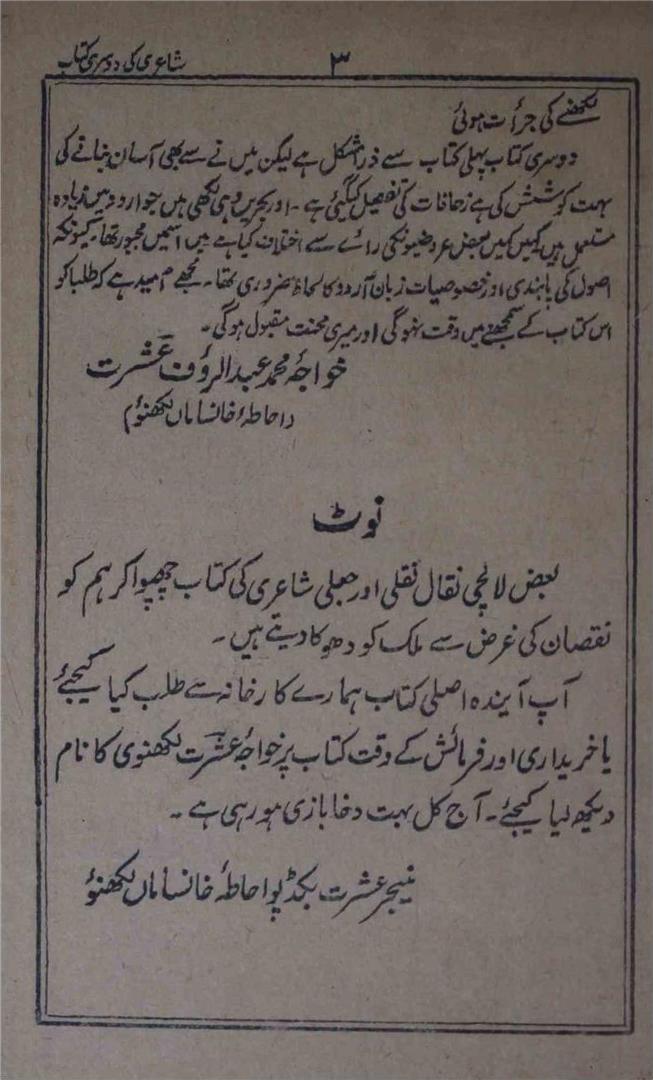 شاعری کی دوسری کتاب
۳
لکھنے کی جرأت ہوئی
دوسری کتاب پہلی کتاب سے ذرا مشکل ہے لیکن میں نے اسے بھی آسان بنانے کی
بہت کوشش کی ہے زحافات کی تفصیل کیگئی ہے۔ اور بحریں وہی لکھی ہیں جو اردو میں زیادہ
مستعمل ہیں کہیں کہیں بعض عروضیونکی رائے سے اختلاف کیا ہے میں اسمیں مجبور تھا۔ کیونکہ
اصول کی پابندی اور خصوصیات زبان اردو کا لحاظ ضروری تھا۔ مجھے امید ہے کہ طلبا کو
اس کتاب کے سمجھنے میں دقت نہوگی اور میری محنت مقبول ہوگی۔
خواجہ محمد عبد الرؤف عشرت
احاطۂ خانساماں لکھنؤ
نوٹ
بعض لالچی نقال نقلی اور جعلی شاعری کی کتاب چھپوا کر ہم کو
نقصان کی غرض سے ملک کو دھوکا دیتے ہیں۔
آپ آیندہ اصلی کتاب ہمارے کارخانہ سے طلب کیا کیجئے
یا خریداری اور فرمائش کے وقت کتاب پر خواجہ عشرت لکھنوی کا نام
دیکھ لیا کیجئے۔ آج کل بہت دغا بازی ہو رہی ہے۔
منیجر عشرت بکڈپو احاطۂ خانساماں لکھنؤ